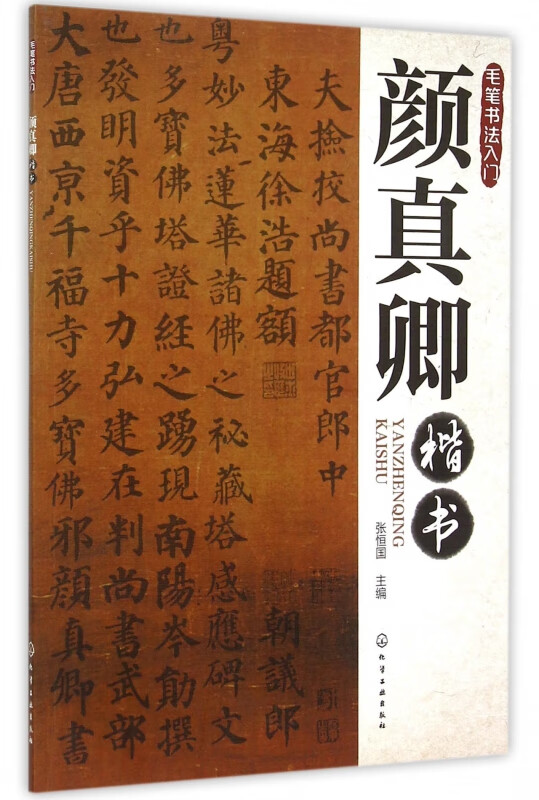 毛笔书法入门
颜真卿
楷书
YANZHENQING
KAISHU
张恒国 主编
化学工业出版社
夫撿挍尚書都官郎中
東海徐浩題額 朝議郎
粤妙法蓮華諸佛之秘藏塔感應碑文
也多寶佛塔證經之踴現南陽岑勛撰
也發明資乎十力弘建在判尚書武部
大唐西京千福寺多寶佛邪顔真卿書
毛笔书法入门
颜真卿
楷书
YANZHENQINGKAISHU
化学工业出版社